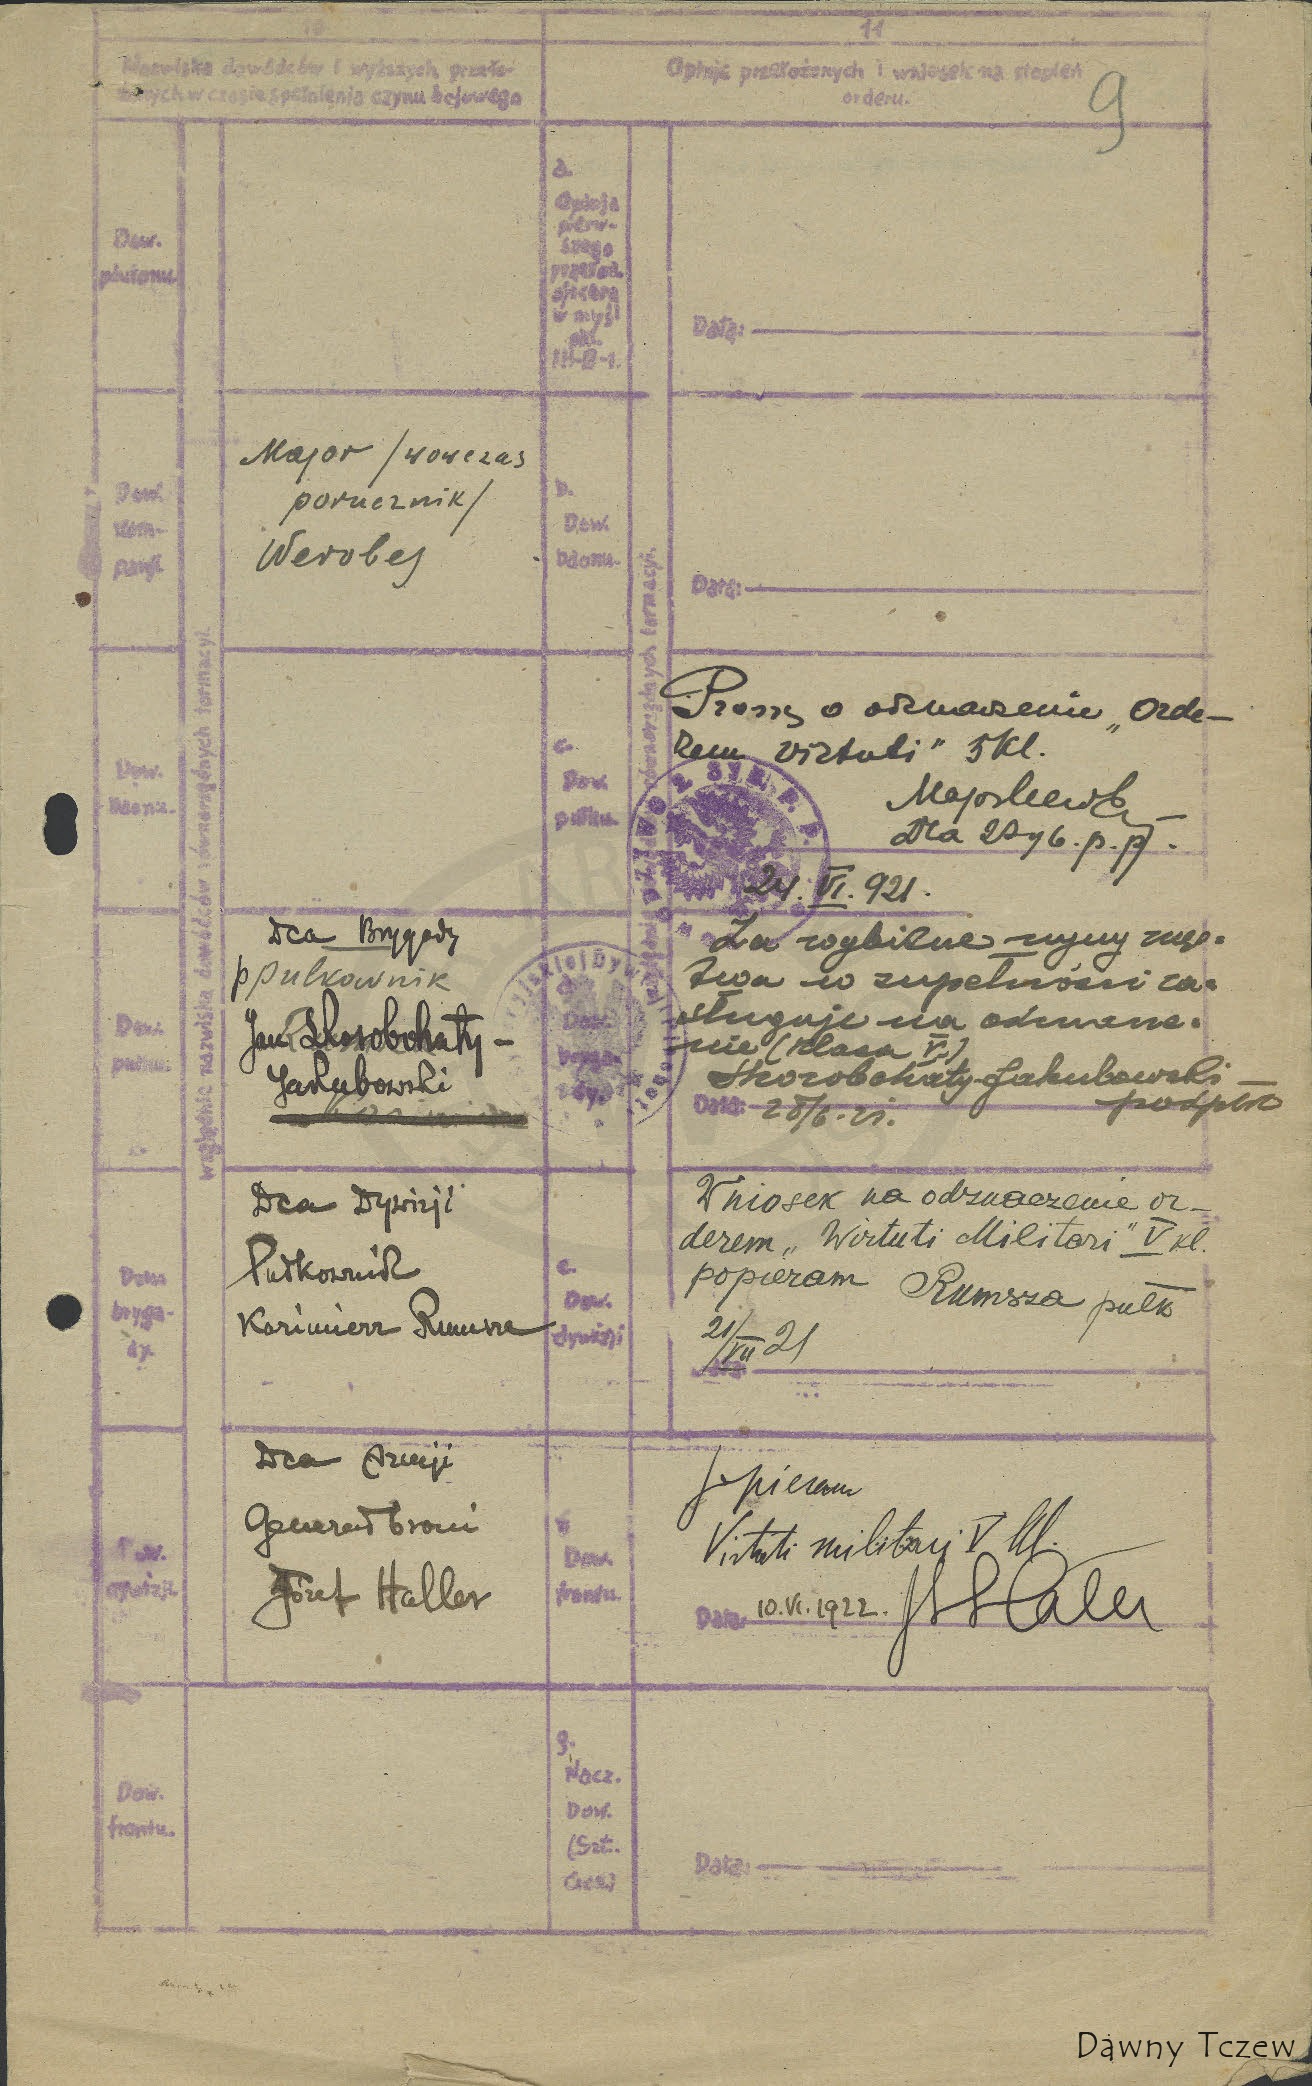 10
11
Nazwiska dowódców i wyższych przeło-
żonych w czasie spełnienia czynu bojowego
Opinje przełożonych i wniosek na stopień
orderu.
9
względnie nazwiska dowódców równorzędnych formacyi.
równorzędnych formacyi.
Dow.
plutonu.
a.
Opinja
pierw-
szego
przełoż.
oficera
w myśl
pkt.
III-B-1.
Data:
Dow.
kom-
panji.
Major /wowczas
porucznik/
Werobej
b.
Dow.
bdonu.
Data:
Dow.
bdonu.
c.
Dow.
pułku.
Proszę o odznaczenie „Orde-
rem Virtuti" 5 kl.
Dca 2 Syb. p. p.
24. VI. 921.
Dow.
pułku.
Dca Brygady
ppułkownik
Jan Skorobohaty-
Jakubowski
Dow.
bryga-
dy.
Za wybitne czyny męs-
twa w zupełności za-
sługuje na odznacze-
nie (klasa V.)
Skorobohaty-Jakubowski
podplk
Data: 28/6. 21.
Dow.
bryga-
dy.
Dca Dywizji
Pułkownik
Kazimierz Rumsza
e.
Dow.
dywizji
Wniosek na odznaczenie or-
derem „Wirtuti Militari" V kl.
popieram Rumsza pułk
21/VII 21
Data:
Dow.
dywizji.
Dca Armji
Generał broni
Józef Haller
f.
Dow.
frontu.
Popieram
Virtuti militari V kl.
Data: 10.VI.1922. J Haller
Dow.
frontu.
g.
Nacz.
Dow.
(Szt.
Gen.)
Data:
Dawny Tczew